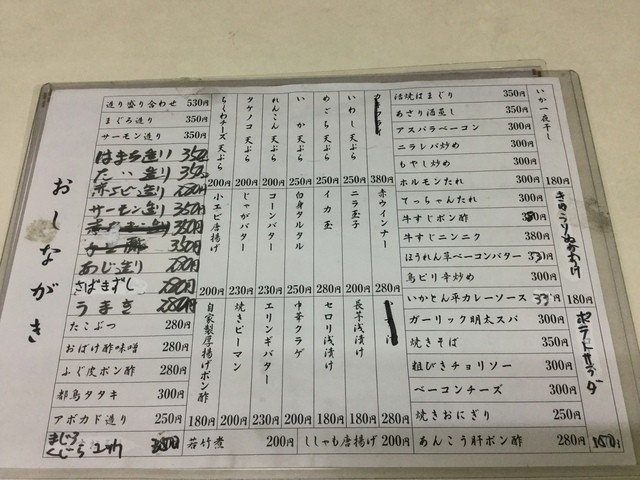 おしながき
造り盛り合わせ 530円
まぐろ造り 350円
サーモン造り 350円
はまち造り 350
たい造り 350
赤えび造り 280円
サーモン造り 350円
350円
350円
あじ造り 280円
さばきずし 280円
うまき 280円
たこぶつ 280円
おばけ酢味噌 280円
ふぐ皮ポン酢 280円
都鳥タタキ 300円
アボカド造り 250円
まぐろ
くじら
ちくわチーズ天ぷら 200円
タケノコ天ぷら 200円
れんこん天ぷら 200円
いか天ぷら 250円
めごち天ぷら 250円
いわし天ぷら 250円
380円
小エビ唐揚げ 200円
じゃがバター 200円
コーンバター 230円
白身タルタル 250円
イカ玉 250円
ニラ玉子 250円
赤ウインナー 280円
自家製厚揚げポン酢 180円
焼きピーマン 200円
エリンギバター 230円
中華クラゲ 200円
セロリ浅漬け 180円
長芋浅漬け 180円
280円
若竹煮 200円
ししゃも唐揚げ 200円
活焼はまぐり 350円
あさり酒蒸し 350円
アスパラベーコン 300円
ニラレバ炒め 300円
もやし炒め 300円
ホルモンたれ 300円
てっちゃんたれ 300円
牛すじポン酢
牛すじニンニク 380円
ほうれん草ベーコンバター
鳥ピリ辛炒め 300円
いかとん平カレーソース
ガーリック明太スパ 300円
焼きそば 350円
粗びきチョリソー 300円
ベーコンチーズ 300円
焼きおにぎり 250円
あんこう肝ポン酢 280円
いか一夜干し 180円
きゅうりぬか漬け 180円
ポテトサラダ